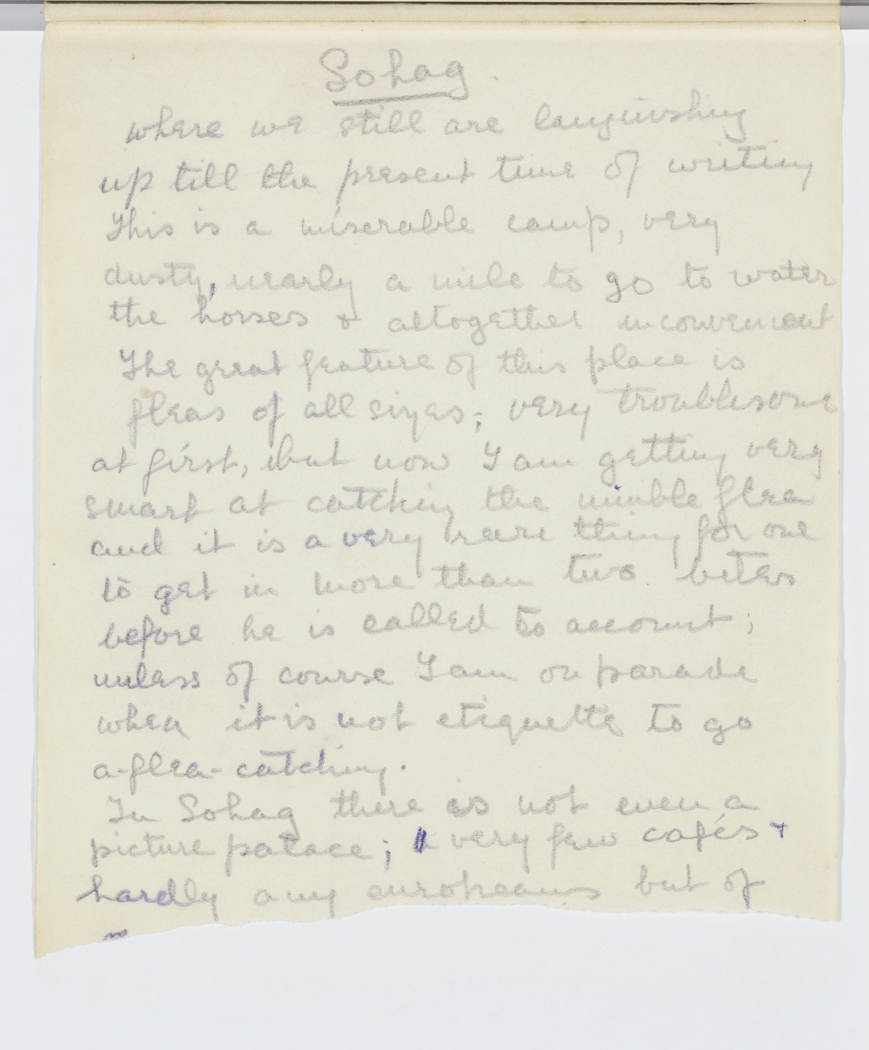 Sohag.
where we still are languishing
up till the present time of writing
This is a miserable camp, very
dusty, nearly a mile to go to water
the horses & altogether inconvenient
The great feature of this place is
fleas of all sizes; very troublesome
at first, but now I am getting very
smart at catching the nimble flea
and it is a very rare thing for one
to get in more than two bites
before he is called to account;
unless of course I am on parade
when it is not etiquette to go
a-flea-catching.
In Sohag there is not even a
picture palace; very few cafés &
hardly any europeans but of